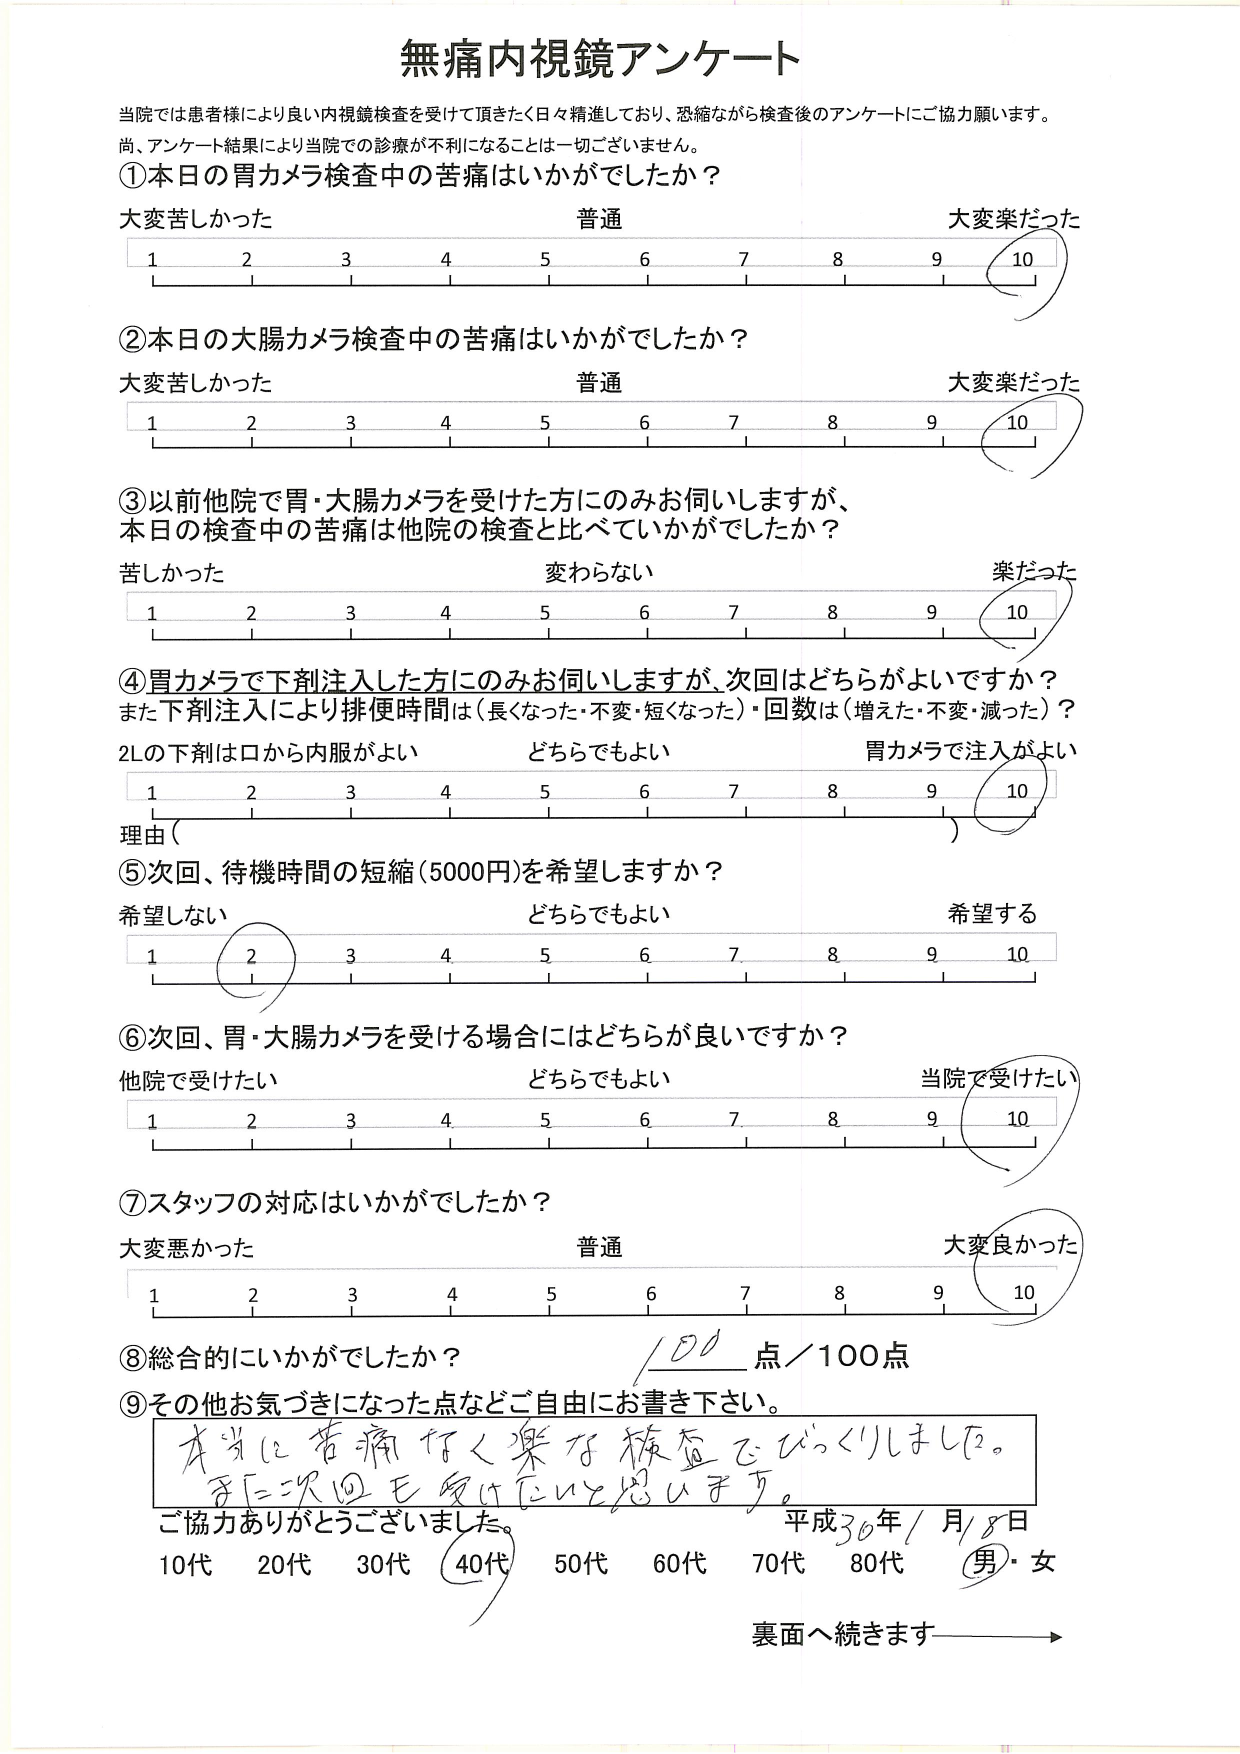 無痛内視鏡アンケート
当院では患者様により良い内視鏡検査を受けて頂きたく日々精進しており、恐縮ながら検査後のアンケートにご協力願います。
尚、アンケート結果により当院での診療が不利になることは一切ございません。
①本日の胃カメラ検査中の苦痛はいかがでしたか？
大変苦しかった 普通 大変楽だった
1 2 3 4 5 6 7 8 9 10
②本日の大腸カメラ検査中の苦痛はいかがでしたか？
大変苦しかった 普通 大変楽だった
1 2 3 4 5 6 7 8 9 10
③以前他院で胃・大腸カメラを受けた方にのみお伺いしますが、
本日の検査中の苦痛は他院の検査と比べていかがでしたか？
苦しかった 変わらない 楽だった
1 2 3 4 5 6 7 8 9 10
④胃カメラで下剤注入した方にのみお伺いしますが、次回はどちらがよいですか？
また下剤注入により排便時間は（長くなった・不変・短くなった）・回数は（増えた・不変・減った）？
2Lの下剤は口から内服がよい どちらでもよい 胃カメラで注入がよい
1 2 3 4 5 6 7 8 9 10
理由（ ）
⑤次回、待機時間の短縮（5000円）を希望しますか？
希望しない どちらでもよい 希望する
1 2 3 4 5 6 7 8 9 10
⑥次回、胃・大腸カメラを受ける場合にはどちらが良いですか？
他院で受けたい どちらでもよい 当院で受けたい
1 2 3 4 5 6 7 8 9 10
⑦スタッフの対応はいかがでしたか？
大変悪かった 普通 大変良かった
1 2 3 4 5 6 7 8 9 10
⑧総合的にいかがでしたか？ 100 点／100点
⑨その他お気づきになった点などご自由にお書き下さい。
本当に苦痛なく楽な検査でびっくりしました。
また次回も受けたいと思います。
ご協力ありがとうございました。 平成30年1月18日
10代 20代 30代 40代 50代 60代 70代 80代 男・女
裏面へ続きます